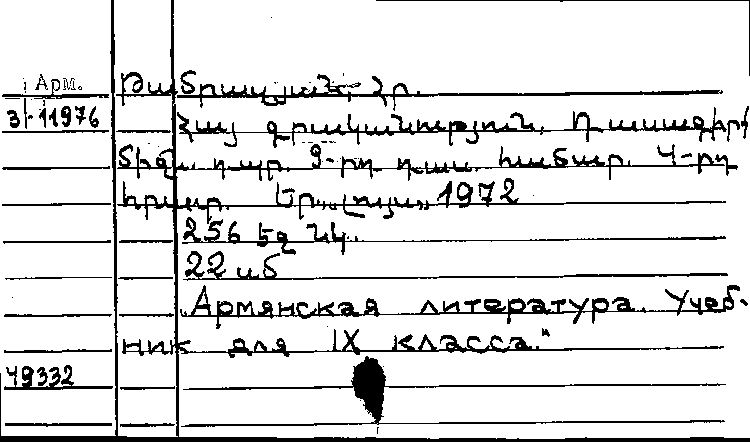 Арм.
Թամրազյան, Հր.
3-11976
Հայ գրականություն. Դասագիրք
միջն. դպր. 9-րդ դաս. համար. 4-րդ
հրատ. Եր., „Լույս„ 1972
256 էջ նկ.
22 սմ
„Армянская литература. Учеб-
ник для IX класса."
49332